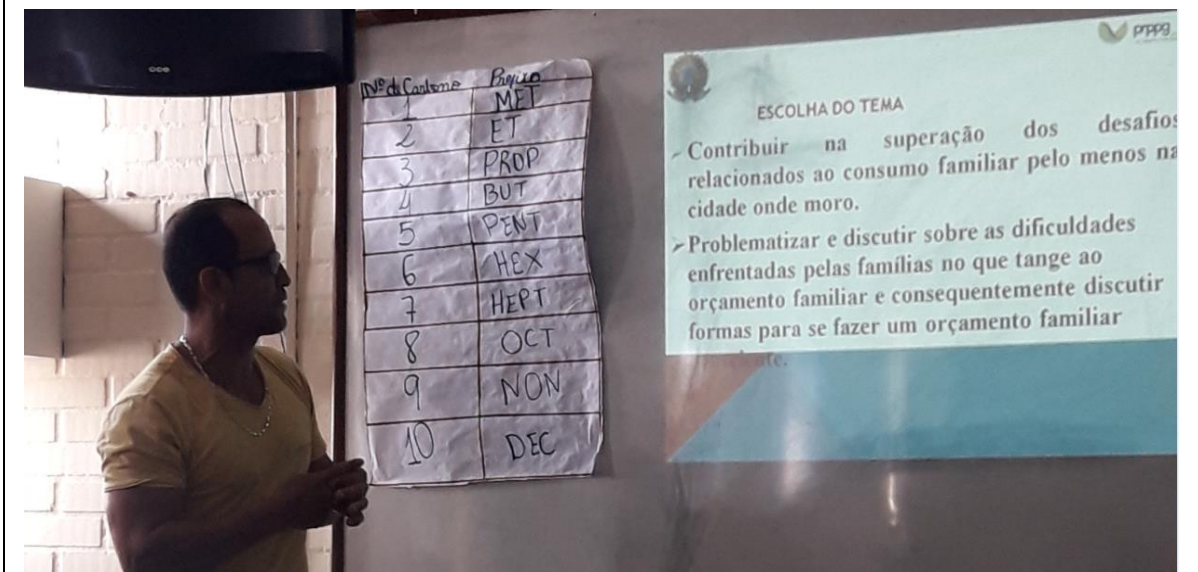 Nº de Carbono Prefixo
1 MET
2 ET
3 PROP
4 BUT
5 PENT
6 HEX
7 HEPT
8 OCT
9 NON
10 DEC
prppg
ESCOLHA DO TEMA
Contribuir na superação dos desafios
relacionados ao consumo familiar pelo menos na
cidade onde moro.
➢Problematizar e discutir sobre as dificuldades
enfrentadas pelas famílias no que tange ao
orçamento familiar e consequentemente discutir
formas para se fazer um orçamento familiar